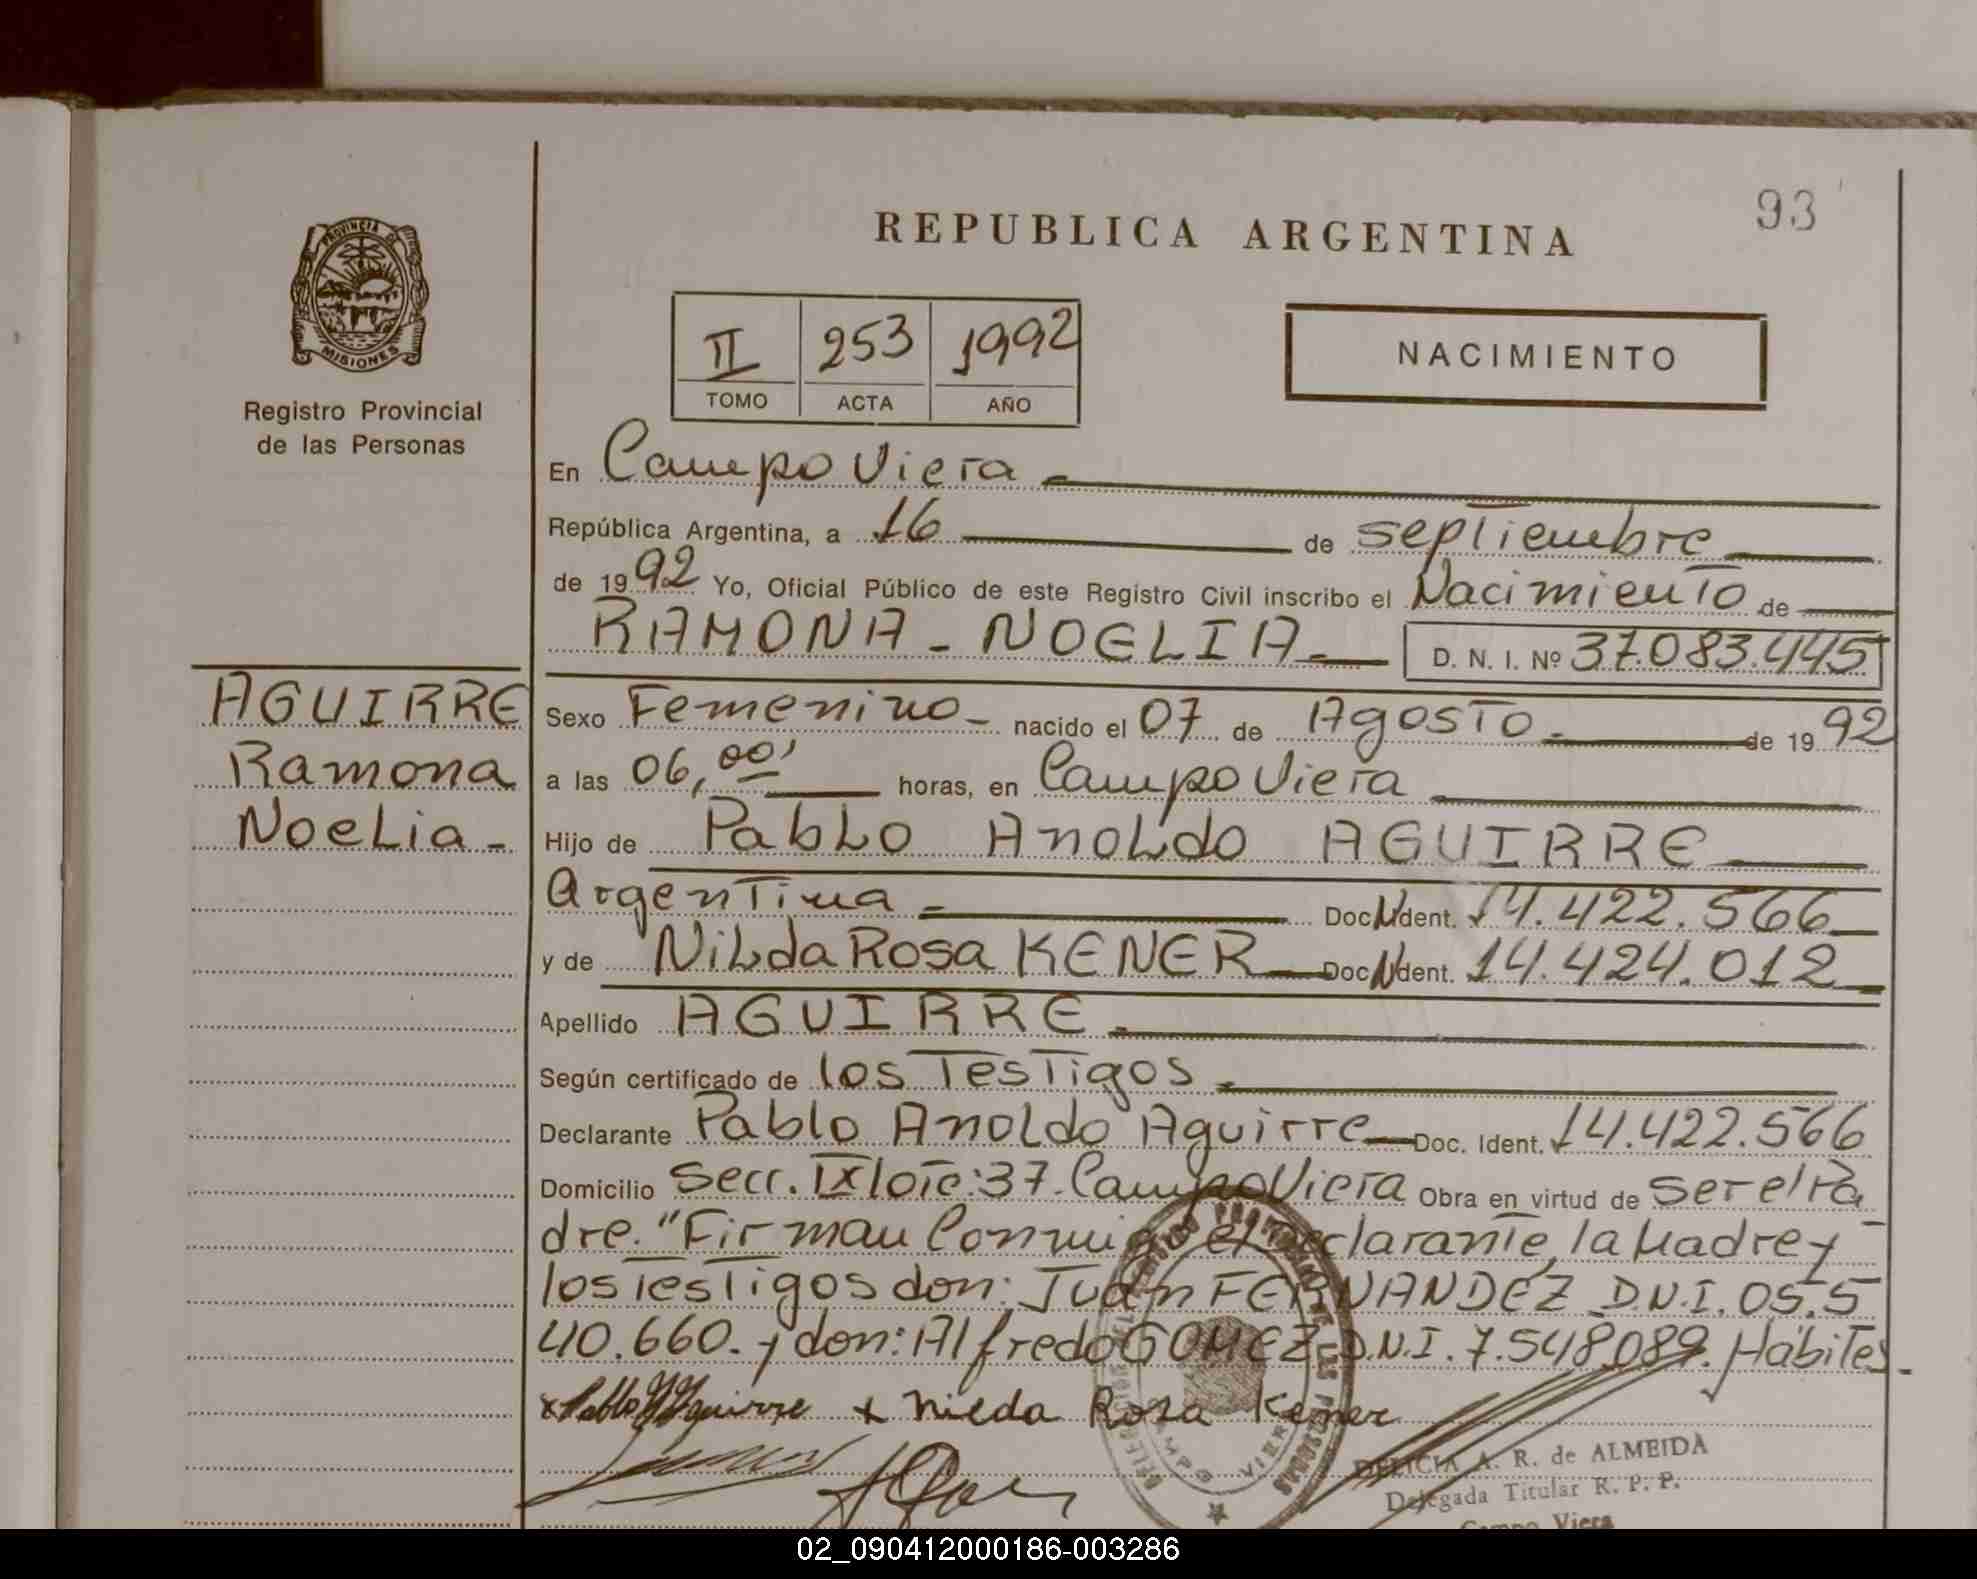 93
REPUBLICA ARGENTINA
PROVINCIA DE
MISIONES
Registro Provincial
de las Personas
II 253 1992
TOMO ACTA AÑO
NACIMIENTO
En Campo Viera
República Argentina, a 16 de septiembre
de 1992 Yo, Oficial Público de este Registro Civil inscribo el Nacimiento de
RAMONA - NOELIA - D. N. I. Nº 37.083.445
AGUIRRE
Ramona
Noelia -
Sexo Femenino - nacido el 07 de Agosto - de 1992
a las 06,00' horas, en Campo Viera
Hijo de Pablo Anoldo AGUIRRE
Argentina - Doc. N Ident. 14.422.566
y de Nilda Rosa KENER Doc. N Ident. 14.424.012
Apellido AGUIRRE
Según certificado de los Testigos
Declarante Pablo Anoldo Aguirre Doc. Ident. 14.422.566
Domicilio Secc. IX lote: 37. Campo Viera Obra en virtud de ser el Pa
dre. "Firman Conmigo el Declarante, la Madre y
los Testigos don: Juan FERNANDEZ D.N.I. 05.5
40.660. y don: Alfredo GOMEZ D.N.I. 7.548.089. Hábiles.
x Pablo A Aguirre x Nilda Rosa Kener
CAMPO VIERA
DELICIA A. R. de ALMEIDA
Delegada Titular R. P. P.
Campo Viera
02_090412000186-003286